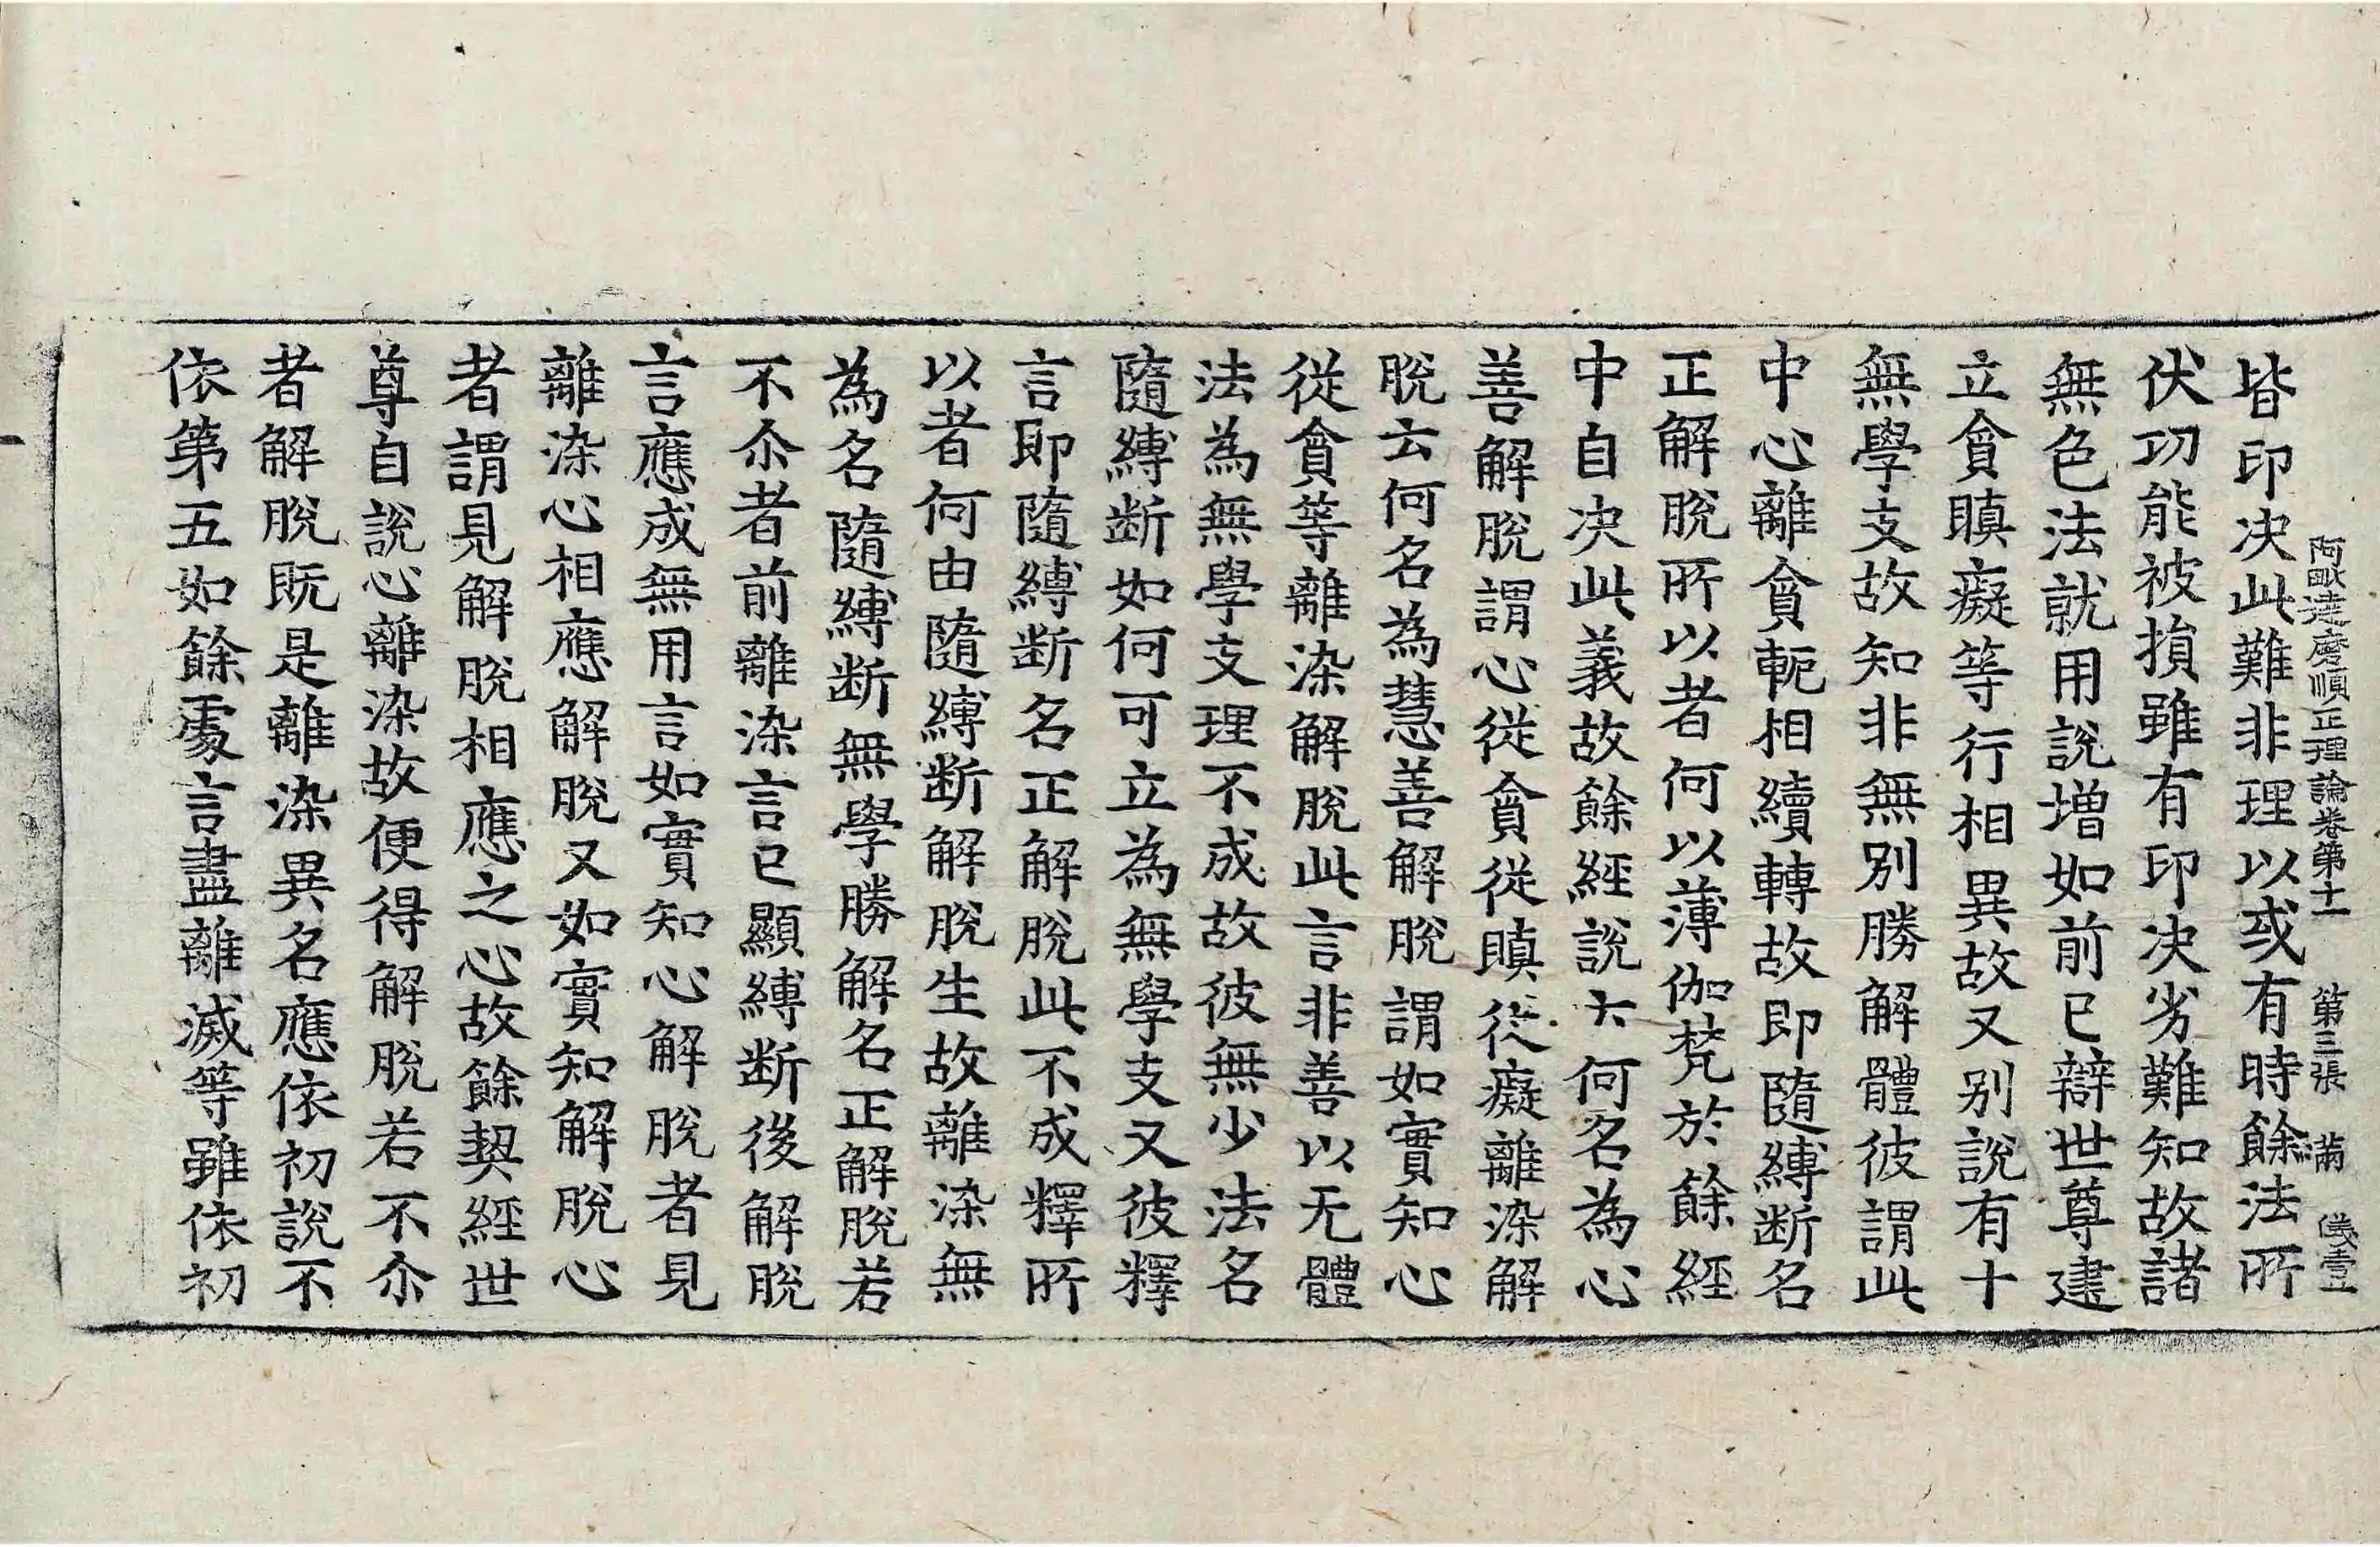 阿毗達磨順正理論卷第十一 第三張 滿 儀壹
皆印決此難非理以或有時餘法所
伏功能被損雖有印決劣難知故諸
無色法就用說增如前已辯世尊建
立貪瞋癡等行相異故又别說有十
無學支故知非無別勝解體彼謂此
中心離貪軛相續轉故即隨縛断名
正解脫所以者何以薄伽梵於餘經
中自決此義故餘經說云何名為心
善解脫謂心從貪從瞋從癡離染解
脫云何名為慧善解脫謂如實知心
從貪等離染解脫此言非善以无體
法為無學支理不成故彼無少法名
隨縛断如何可立為無學支又彼釋
言即隨縛断名正解脫此不成釋所
以者何由隨縛断解脫生故離染無
為名隨縛断無學勝解名正解脫若
不尒者前離染言已顯縛断後解脫
言應成無用言如實知心解脫者見
離染心相應解脫又如實知解脫心
者謂見解脫相應之心故餘契經世
尊自說心離染故便得解脫若不尒
者解脫既是離染異名應依初說不
依第五如餘處言盡離滅等雖依初